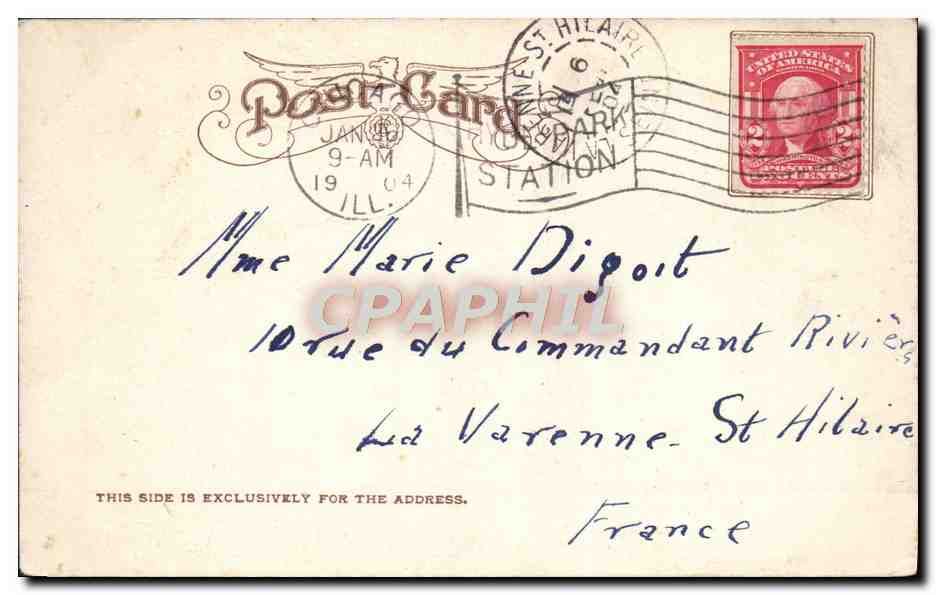 Post Card
JAN 16
9-AM
19 04
ILL.
STATION
ENNE ST. HILAIRE
6
04
UNITED STATES
OF AMERICA
2 2
POSTAGE
CENTS
Mme Marie Digoit
10 rue du Commandant Rivière
La Varenne - St Hilaire
France
THIS SIDE IS EXCLUSIVELY FOR THE ADDRESS.
CPAPHIL